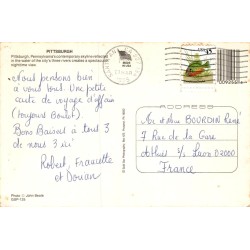 PITTSBURGH
Pittsburgh, Pennsylvania's contemporary skyline reflected
in the water of the city's three rivers creates a spectacular
nighttime view.
Nous pensons bien
à vous tous. Une petite
carte de voyage d'affaire
(toujours Boulot)
Bons Baisers à tous 3
de nous 3 ici
Robert, Francette
et Dorian
Photo: J. John Muste
USA
ADDRESS
Mr et Mme BOURDIN René
7 Rue de la Gare
Athies s/s Laon 02000
France